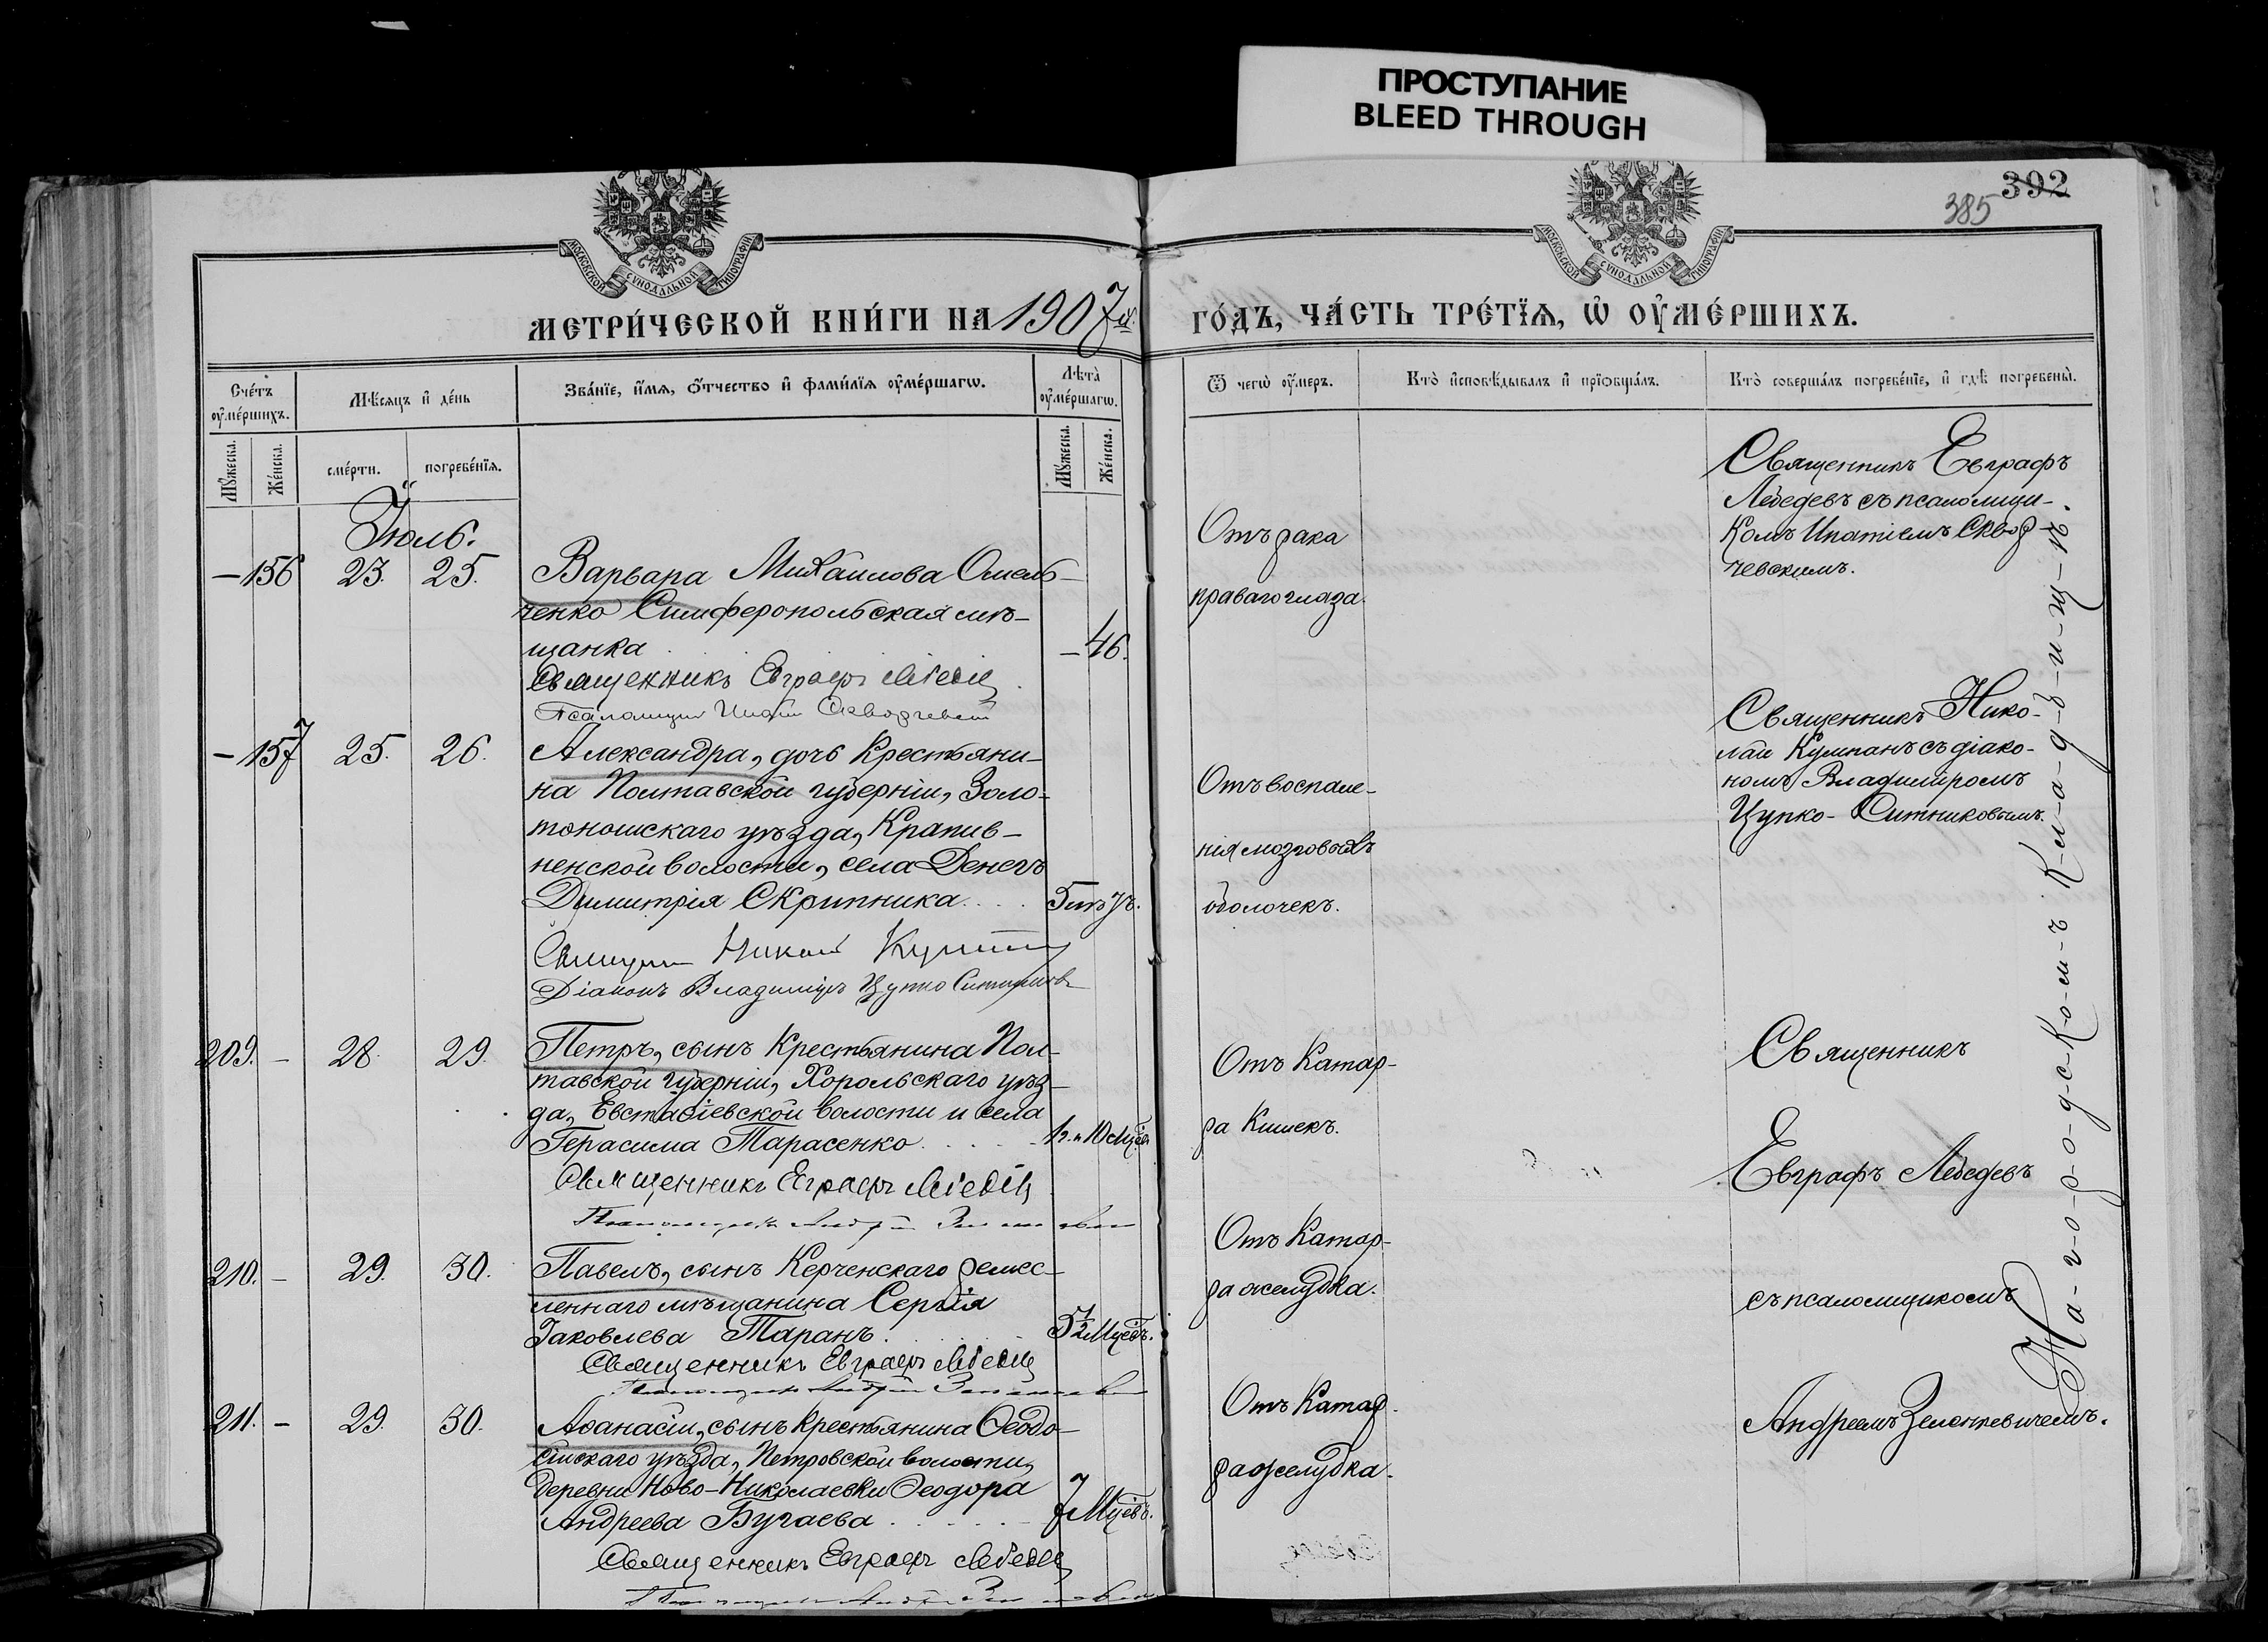 ПРОСТУПАНИЕ
BLEED THROUGH
392
385
МОСКОВСКОЙ СѴНОДАЛЬНОЙ ТИПОГРАФІИ
МОСКОВСКОЙ СѴНОДАЛЬНОЙ ТИПОГРАФІИ
МЕТРИ́ЧЕСКОЙ КНИ́ГИ НА 1907й
ГО́ДЪ, ЧА́СТЬ ТРЕ́ТЇѦ, Ѡ҆ ОУ҆МЕ́РШИХЪ.
Сче́тъ оу҆ме́ршихъ.
Мѣ́сяцъ и҆ де́нь
Зва́нїе, и҆́мѧ, ѻ҆́тчество и҆ фами́лїѧ оу҆ме́ршагѡ.
Лѣ̀та оу҆ме́ршагѡ.
Ѿ чегѡ̀ оу҆́меръ.
Кто̀ и҆сповѣ́дывалъ и҆ прїѡбща́лъ.
Кто̀ соверша́лъ погребе́нїе, и҆ гдѣ̀ погребены̀.
Мꙋ́жеска.
Же́нска.
сме́рти.
погребе́нїѧ.
Мꙋ́жеска.
Же́нска.
Іюль.
— 156 23. 25. Варвара Михаилова Омель-
ченко Симферопольская мѣ-
щанка . . . — 46.
Священникъ Евграфъ Лебедев
Псаломщик Ипатій Скворчевскій
Отъ рака
праваго глаза.
Священникъ Евграфъ
Лебедевъ съ псаломщи-
комъ Ипатіемъ Сквор
чевскимъ.
— 157 25. 26. Александра, дочь крестьяни-
на Полтавской губерніи, Золо-
тоношскаго уѣзда, Крапив-
ненской волости, села Денегъ
Димитрія Скрипника . . .
Священник Николай Кумпан
Діаконъ Владиміръ Цупко Ситников
Отъ воспале-
нія мозговыхъ
оболочекъ.
Священникъ Нико-
лай Кумпанъ съ діако-
номъ Владиміромъ
Цупко-Ситниковымъ.
209. — 28. 29. Петръ, сынъ крестьянина Пол-
тавской губерніи, Хорольскаго уѣз-
да, Евстафіевской волости и села
Герасима Тарасенко . . . . 1г. и 10 мцев
Священникъ Евграфъ Лебедев
Псаломщикъ Андрей Зеленкевич
Отъ катар-
ра кишекъ.
Священникъ
Евграфъ Лебедевъ
210. — 29. 30. Павелъ, сынъ Керченскаго ремес-
леннаго мѣщанина Сергія
Іаковлева Таранъ . . . . 5½ Мцевъ.
Священникъ Евграфъ Лебедев
Псаломщикъ Андрей Зеленкевич
Отъ катар-
ра желудка.
съ псаломщикомъ
211. — 29. 30. Аѳанасій, сынъ крестьянина Ѳеодо-
сійскаго уѣзда, Петровской волости,
деревни Ново-Николаевки Ѳеодора
Андреева Бугаева . . . . 7 Мцевъ.
Священникъ Евграфъ Лебедев
Псаломщикъ Андрей Зеленкевич
Отъ катар
ра желудка.
Андреемъ Зеленкевичемъ.
На-го-р-о-д-с-к-о-м-ъ К-л-а-д-б-и-щ-ѣ.